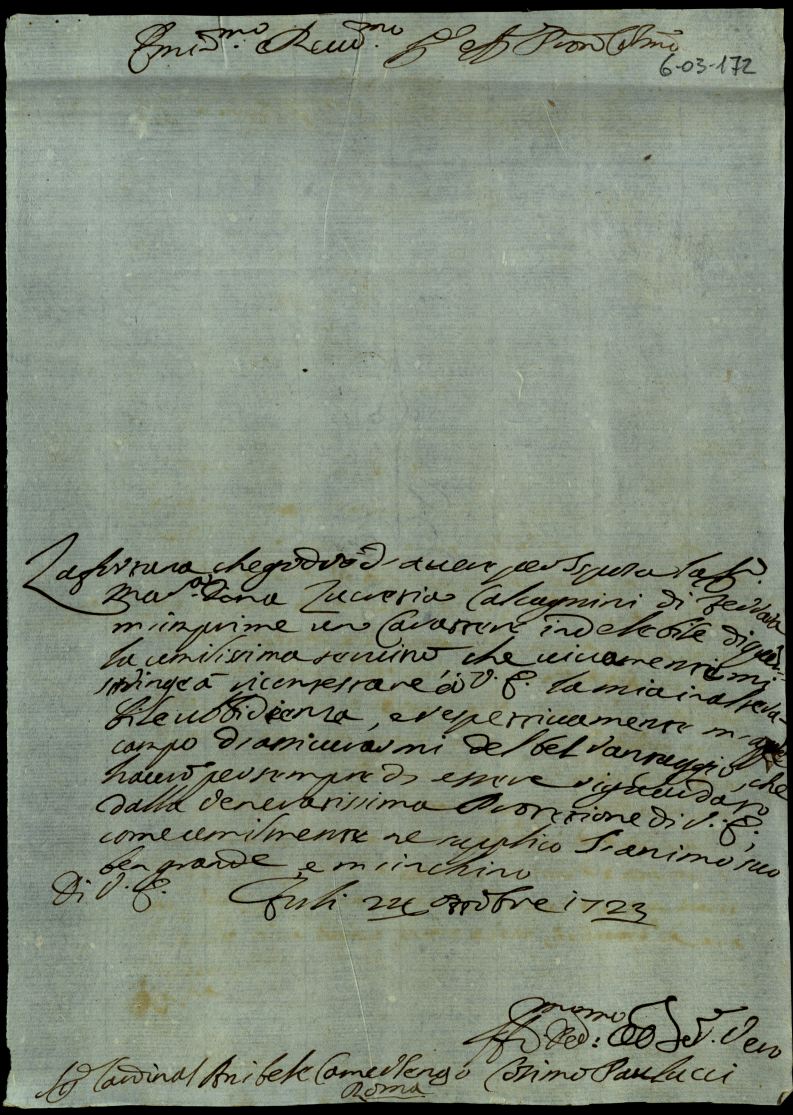 Emin.mo e Reu.mo Sig.r e Pron Col.mo
6-03-172
La fortuna, che godrò d'auere per Sposa la Sig.ra
Mar.a Dona Lucrezia Calcagnini di Ferrara
m'imprime un Carattere indelebile di quel-
la umilissima seruitù che uiuamente mi
stringe à ricontestare à V. E. la mia inaltera-
bile ubbidienza, e respettiuamente m'apre
campo di assicurarmi del bel vantaggio, che
hauerò per sempre di essere riguardato
dalla Veneratissima Protezione di V. E.,
come umilmente ne supplico l'animo suo
ben grande, e m'inchino
Di V. E. Forlì 24 ottobre 1723
Sig. Cardinal Anibale Camerlengo
Roma
Cosimo Paulucci